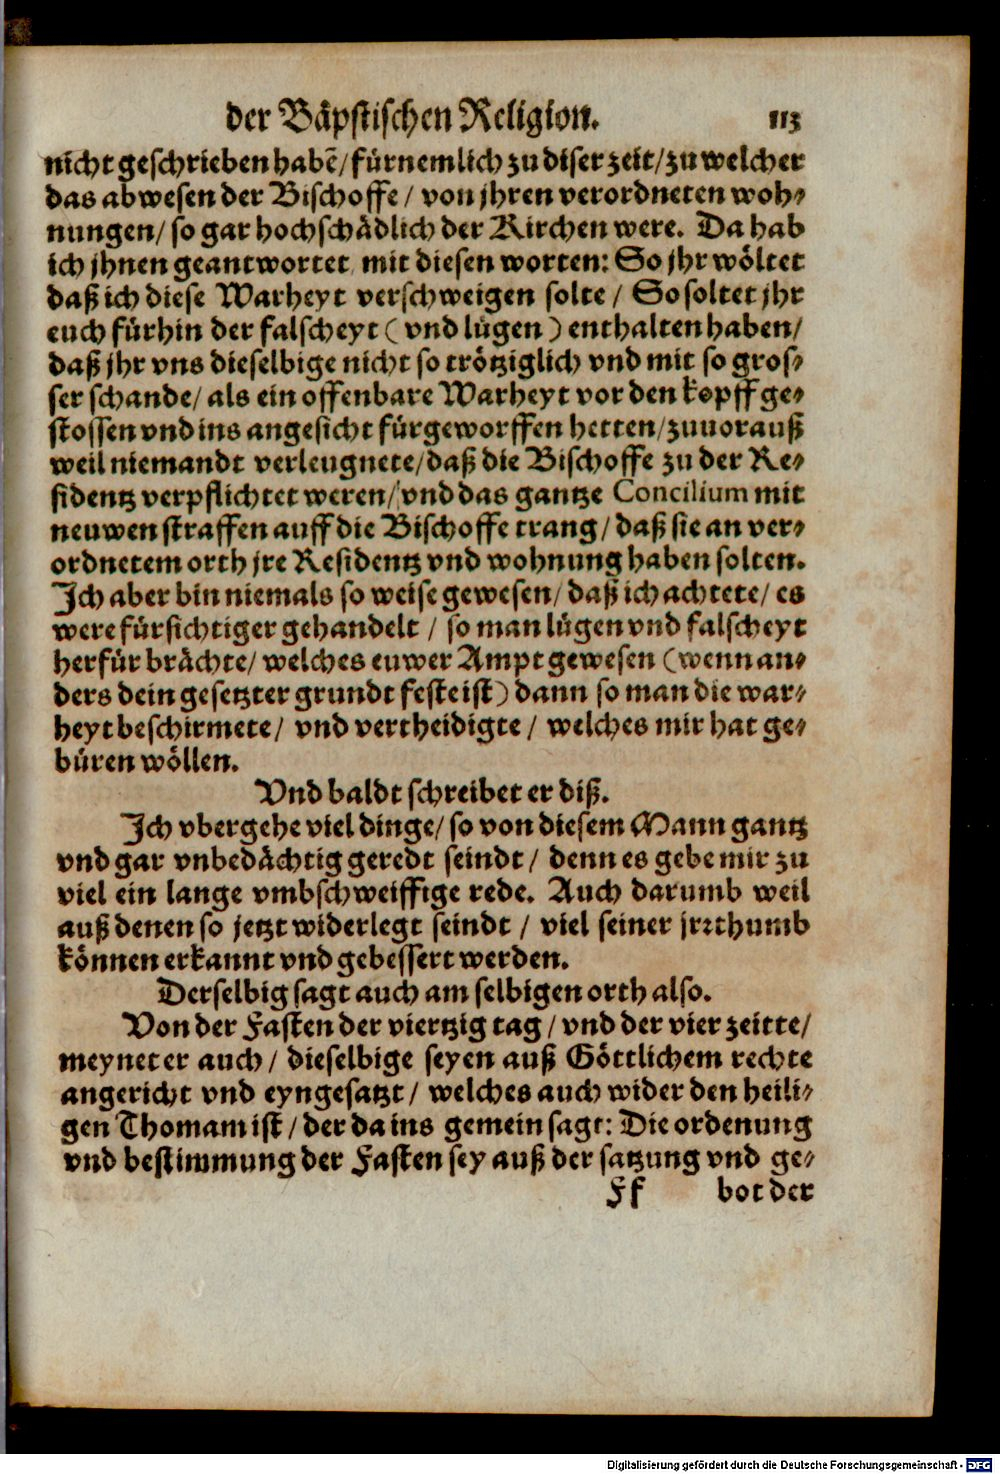 der Bäpstischen Religion. 113
nicht geschrieben habē/ fürnemlich zu diser zeit/ zu welcher
das abwesen der Bischoffe / von jhren verordneten woh-
nungen/ so gar hochschädlich der Kirchen were. Da hab
ich jhnen geantwortet mit diesen worten: So jhr wöltet
daß ich diese Warheyt verschweigen solte / So soltet jhr
euch fürhin der falscheyt ( vnd lügen ) enthalten haben/
daß jhr vns dieselbige nicht so trötziglich vnd mit so gros-
ser schande/ als ein offenbare Warheyt vor den kopff ge-
stossen vnd ins angesicht fürgeworffen hetten/ zuuorauß
weil niemandt verleugnete/ daß die Bischoffe zu der Re-
sidentz verpflichtet weren/ vnd das gantze Concilium mit
neuwen straffen auff die Bischoffe trang/ daß sie an ver-
ordnetem orth jre Residentz vnd wohnung haben solten.
Ich aber bin niemals so weise gewesen/ daß ich achtete/ es
were fürsichtiger gehandelt / so man lügen vnd falscheyt
herfür brächte/ welches euwer Ampt gewesen (wenn an-
ders dein gesetzter grundt feste ist) dann so man die war-
heyt beschirmete/ vnd vertheidigte / welches mir hat ge-
büren wöllen.
Vnd baldt schreibet er diß.
Ich vbergehe viel dinge/ so von diesem Mann gantz
vnd gar vnbedächtig geredt seindt / denn es gebe mir zu
viel ein lange vmbschweiffige rede. Auch darumb weil
auß denen so jetzt widerlegt seindt / viel seiner jrrthumb
können erkannt vnd gebessert werden.
Derselbig sagt auch am selbigen orth also.
Von der Fasten der viertzig tag / vnd der vier zeitte/
meynet er auch / dieselbige seyen auß Göttlichem rechte
angericht vnd eyngesatzt / welches auch wider den heili-
gen Thomam ist / der da ins gemein sagt: Die ordenung
vnd bestimmung der Fasten sey auß der satzung vnd ge-
Ff bot der
Digitalisierung gefördert durch die Deutsche Forschungsgemeinschaft - DFG